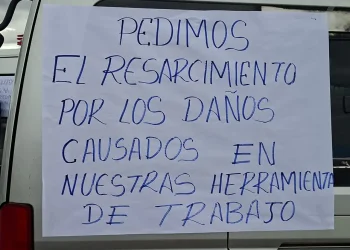 PEDIMOS
EL RESARCIMIENTO
POR LOS DAÑOS
CAUSADOS EN
NUESTRAS HERRAMIENTA
DE TRABAJO